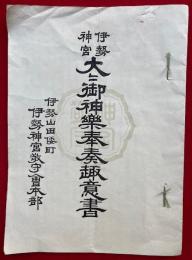 伊勢
神宮
大々御神樂奉奏趣意書
伊勢山田倭町
伊勢神宮敎守會本部